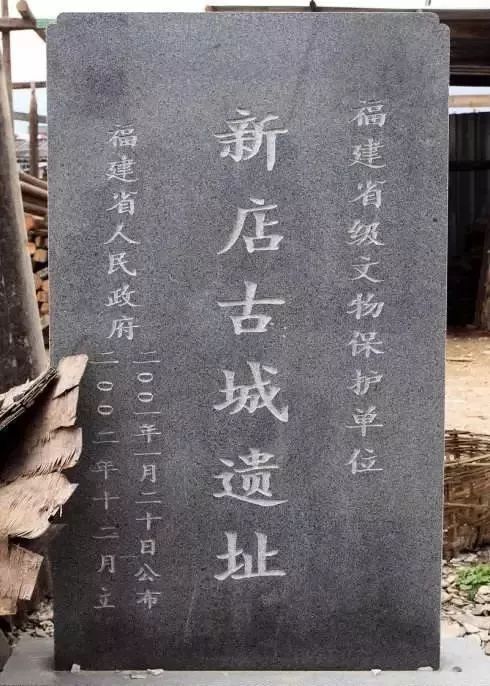 福建省级文物保护单位
新店古城遗址
福建省人民政府
二〇〇一年一月二十日公布
二〇〇二年十二月立